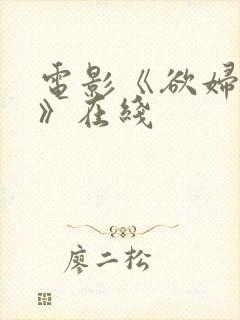 電影《欲婦
》在綫
廖二松